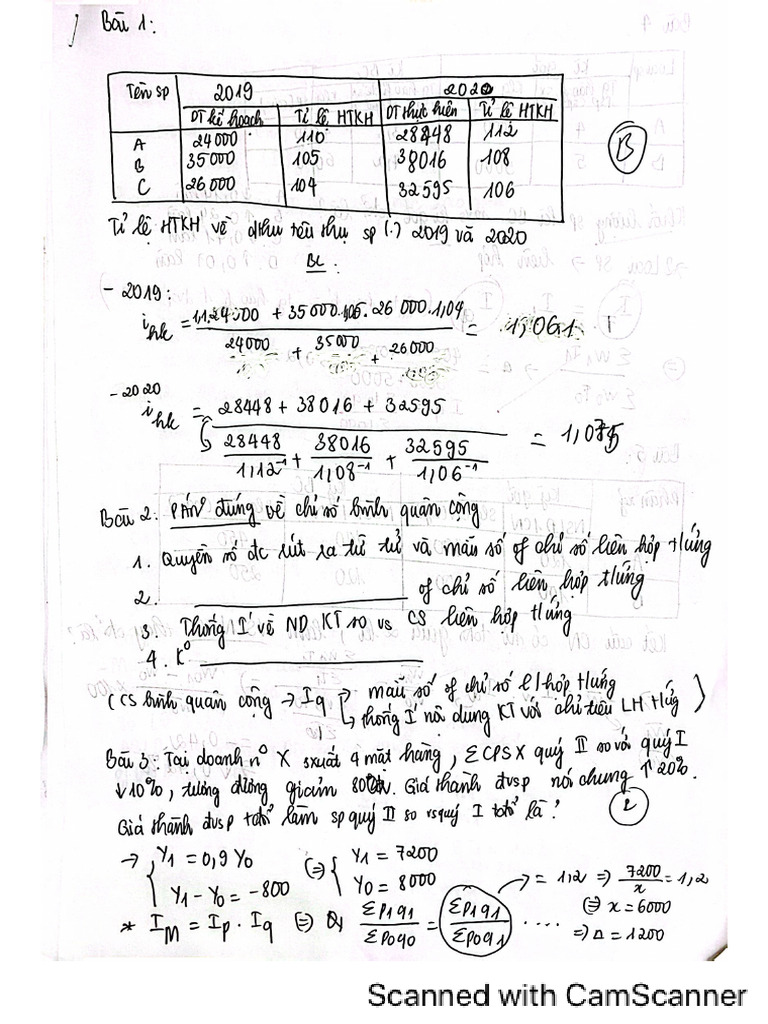 Bài 1:
Tên sp 2019 2020
DT kế hoạch Tỉ lệ HTKH DT thực hiện Tỉ lệ HTKH
A 24000 110 28448 112
B 35000 105 38016 108
C 26000 104 32595 106
B
Tỉ lệ HTKH về dthu tiêu thụ sp (.) 2019 và 2020
BL:
- 2019:
i hk = 1,1.24000 + 35000.1,05 . 26 000.1,04 / 24000 + 35000 + 26000 = 1,061
- 2020
i hk = 28448 + 38016 + 32595 / 28448/1,12⁻¹ + 38016/1,08⁻¹ + 32595/1,06⁻¹ = 1,085
Bài 2: PÁN đúng về chỉ số bình quân cộng
1. Quyền số đc rút ra từ tử và mẫu số of chỉ số liên hợp t/ứng
2. ________ of chỉ số liên hợp t/ứng
3. Thống I' về ND KT so vs CS liên hợp t/ứng
4. K⁰ ________
(CS bình quân cộng → Iq → mẫu số of chỉ số l/hợp t/ứng
↳ thống I' nội dung KT với chỉ tiêu LH t/ứng)
Bài 3: Tại doanh n⁰ X sxuất 4 mặt hàng, ΣCPSX quý II so với quý I
↓10%, tương đương giảm 800tr. Giá thành đvsp nói chung ↑20%.
Giá thành đvsp làm sp quý II so vs quý I là?
→ { Y1 = 0,9 Y0 (=) { Y1 = 7200
Y1 - Y0 = -800 Y0 = 8000
→ = 1,2 => 7200/x = 1,2
* I_M = Ip . Iq (=) Σp1q1/Σp0q0 = Σp1q1/Σp0q1 ....
(=) x = 6000
=> Δ = 1200
Scanned with CamScanner